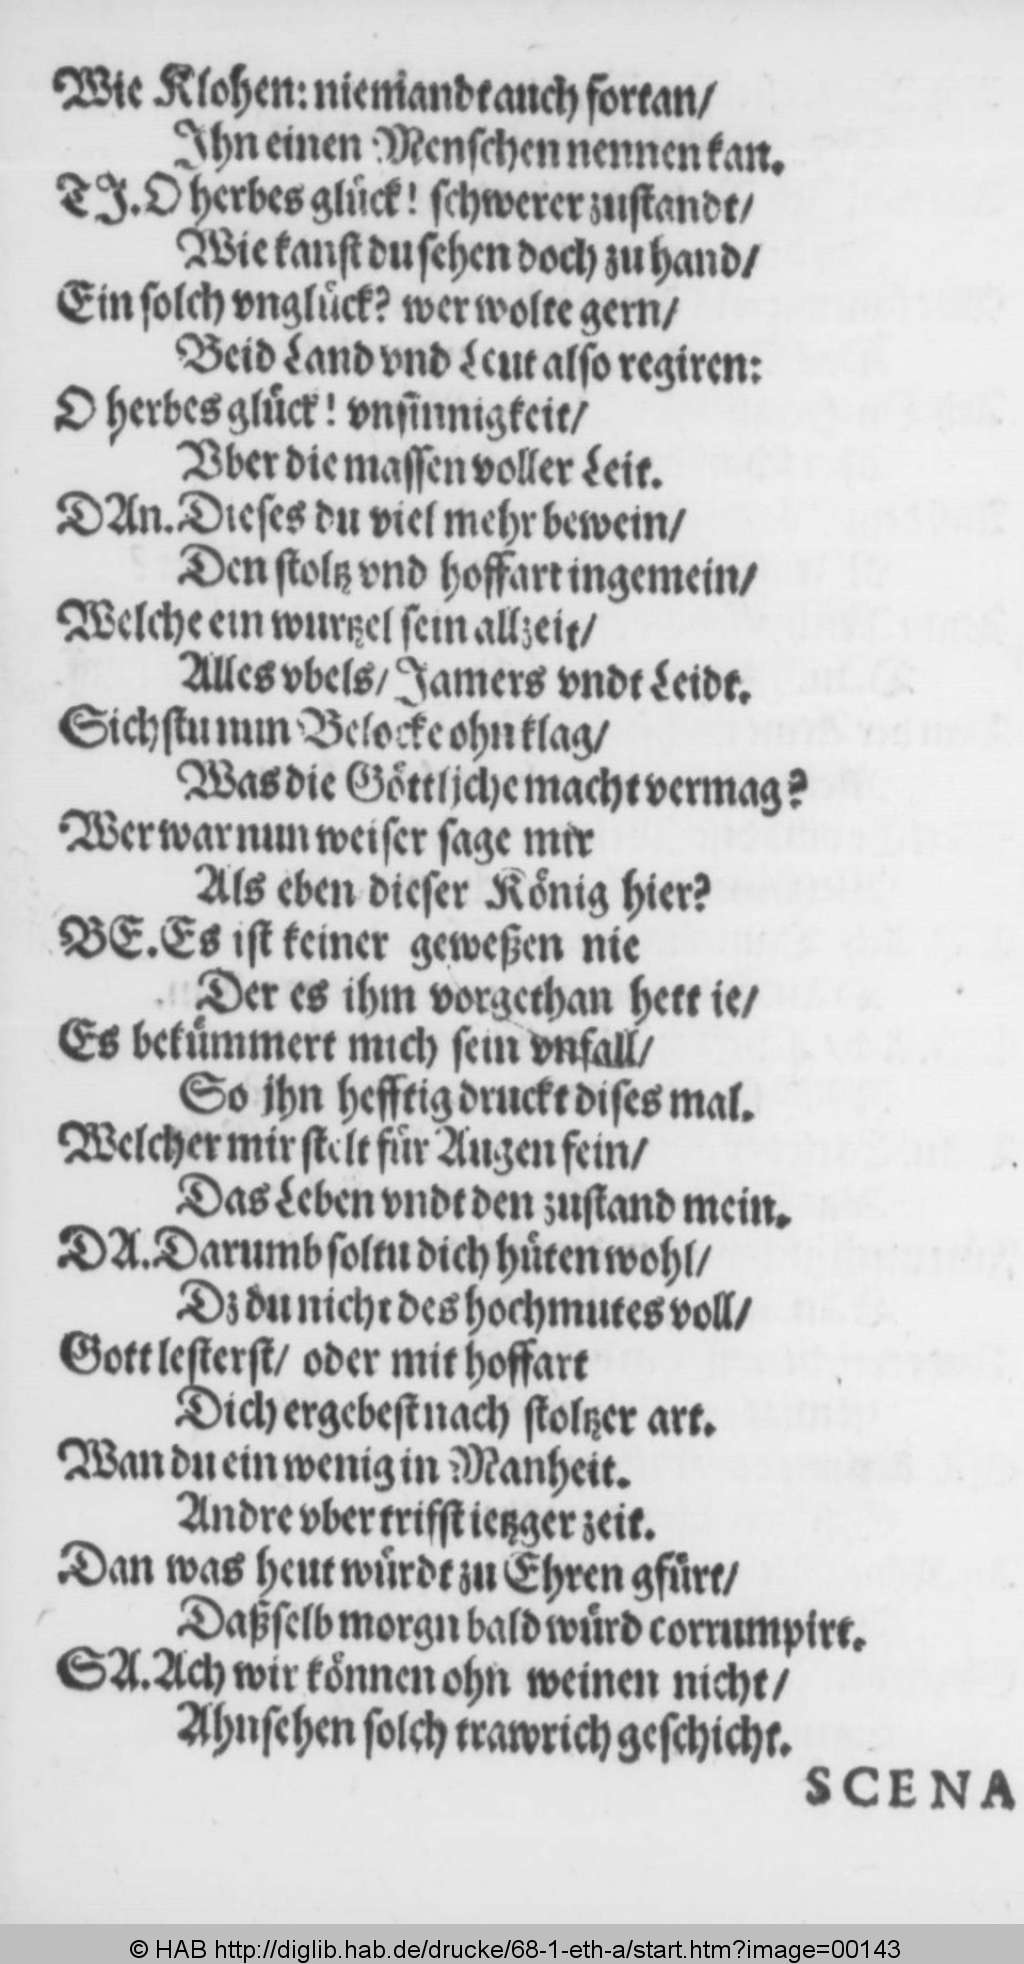 Wie Klohen: niemandt auch fortan/
Ihn einen Menschen nennen kan.
TI. O herbes glück! schwerer zustandt/
Wie kanst du sehen doch zu hand/
Ein solch vnglück? wer wolte gern/
Beid Land vnd Leut also regiren:
O herbes glück! vnsinnigkeit/
Vber die massen voller Leit.
DAn. Dieses du viel mehr bewein/
Den stoltz vnd hoffart ingemein/
Welche ein wurtzel sein allzeit/
Alles vbels/ Jamers vndt Leidt.
Sichstu nun Belocke ohn klag/
Was die Göttliche macht vermag?
Wer war nun weiser sage mir
Als eben dieser König hier?
BE. Es ist keiner geweßen nie
Der es ihm vorgethan hett ie/
Es bekümmert mich sein vnfall/
So ihn hefftig druckt dises mal.
Welcher mir stelt für Augen fein/
Das Leben vndt den zustand mein.
DA. Darumb soltu dich hüten wohl/
Dz du nicht des hochmutes voll/
Gott lesterst/ oder mit hoffart
Dich ergebest nach stoltzer art.
Wan du ein wenig in Manheit.
Andre vbertrifst ietzger zeit.
Dan was heut würdt zu Ehren gfürt/
Daßselb morgn bald würd corrumpirt.
SA. Ach wir können ohn weinen nicht/
Ahnsehen solch trawrich geschicht.
SCENA
© HAB http://diglib.hab.de/drucke/68-1-eth-a/start.htm?image=00143